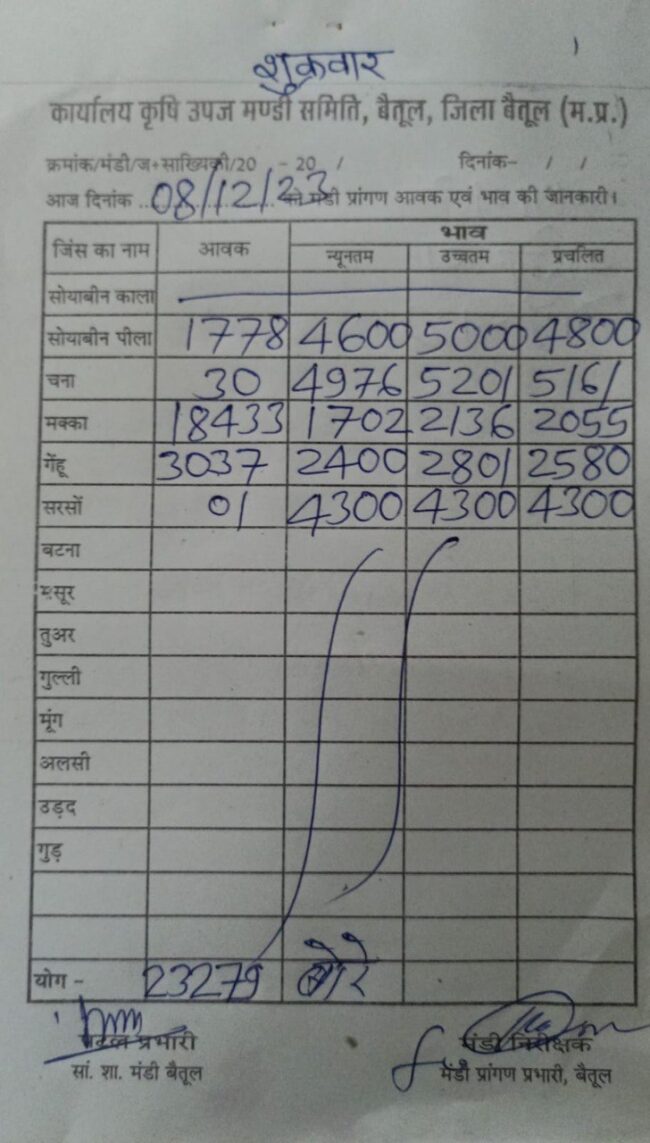 शुक्रवार
कार्यालय कृषि उपज मण्डी समिति, बैतूल, जिला बैतूल (म.प्र.)
क्रमांक/मंडी/ज+साख्यिकी/20 - 20 / दिनांक- / /
आज दिनांक ..08/12/23 को मंडी प्रांगण आवक एवं भाव की जानकारी।
जिंस का नाम आवक भाव
न्यूनतम उच्चतम प्रचलित
सोयाबीन काला
सोयाबीन पीला 1778 4600 5000 4800
चना 30 4976 5201 5161
मक्का 18433 1702 2136 2055
गेंहू 3037 2400 2801 2580
सरसों 01 4300 4300 4300
बटना
मसूर
तुअर
गुल्ली
मूंग
अलसी
उड़द
गुड़
योग - 23279 बोरे
प्रभारी मंडी निरीक्षक
सां. शा. मंडी बैतूल मंडी प्रांगण प्रभारी, बैतूल